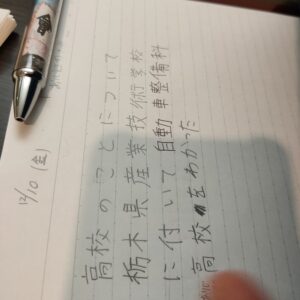 12/10 (金)
高校のことについて
栃木県産業技術学校
に付いて自動車整備科
高校をわかった